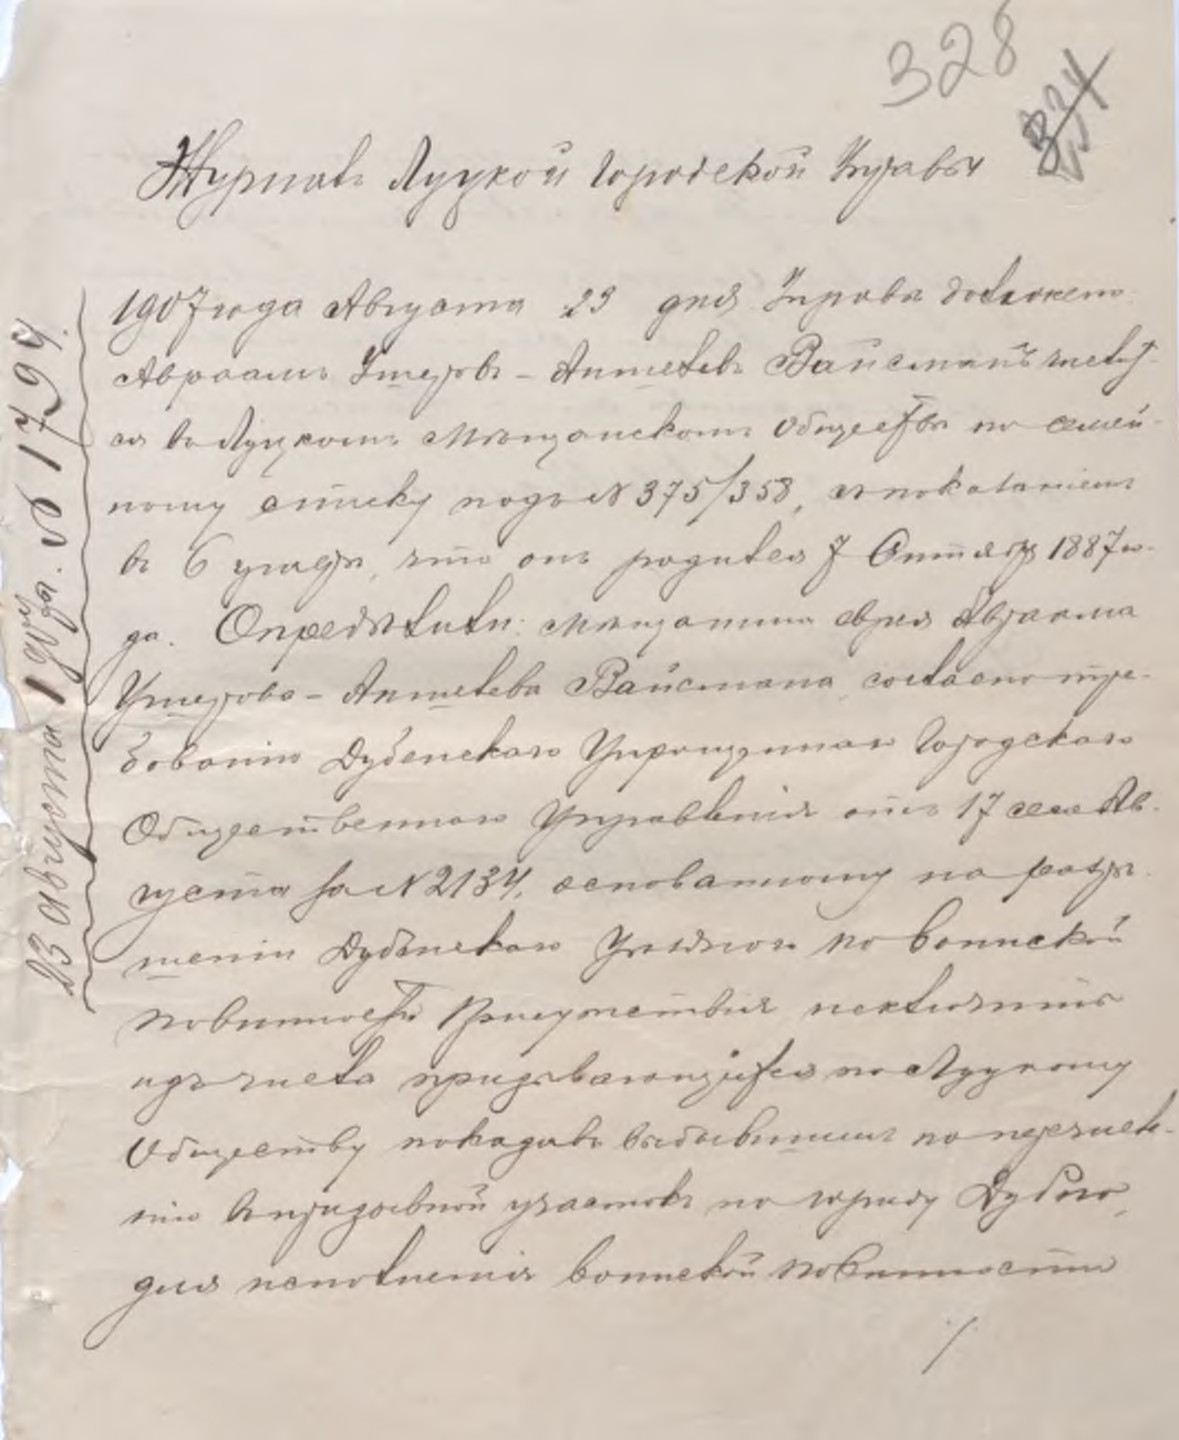 328
334
Журналъ Луцкой Городской Управы
1907 года Августа 23 дня Управа доложено:
Авраамъ Ушеровъ-Аншелевъ Вайсманъ числит-
ся въ Луцкомъ Мѣщанскомъ Обществѣ по семей-
ному списку подъ N 375/358, съ показаніемъ
въ 6 участкѣ, что онъ родился 7 Октября 1887 го-
да. Опредѣлили: мѣщанина еврея Авраама
Ушерова-Аншелева Вайсмана, согласно тре-
бованію Дубенскаго Упрощеннаго Городскаго
Общественнаго Управленія отъ 17 сего Ав-
густа за N 2134, основанному на разрѣ-
шеніи Дубенскаго Уѣзднаго по воинской
повинности Присутствія исключить
изъ числа призывающихся по Луцкому
Обществу показавъ выбывшимъ по перечисле-
нію въ призывной участокъ по городу Дубно,
для исполненія воинской повинности
23 Августа 1907 года. N 1794.